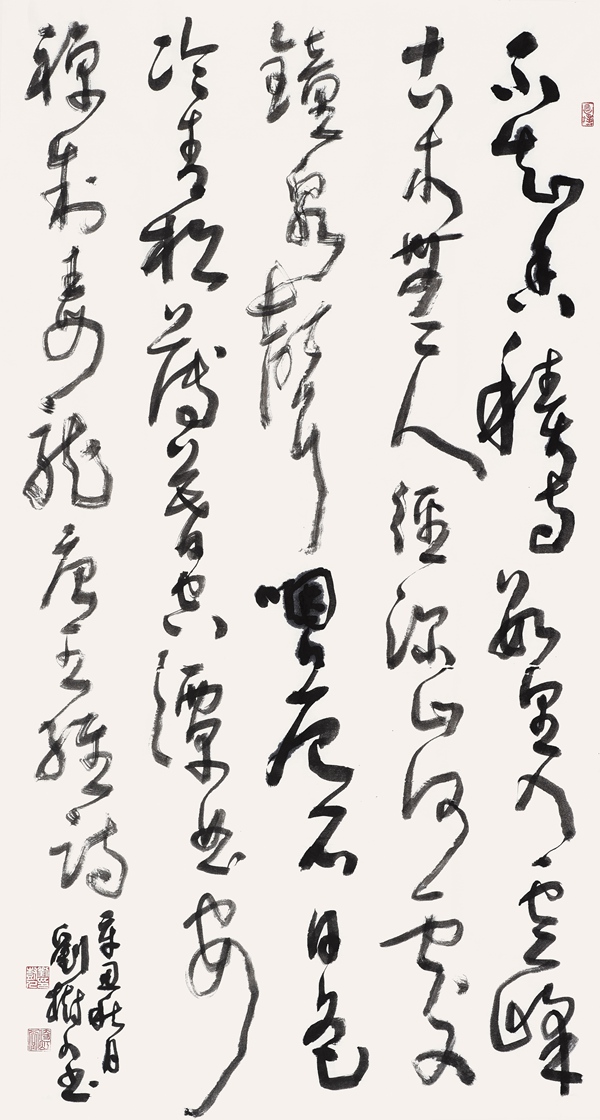 不知香積寺數里入雲峰
古木無人徑深山何處
鐘泉聲咽危石日色
冷青松薄暮空潭曲安
禪制毒龍唐王維詩
辛丑秋月
劉樹書